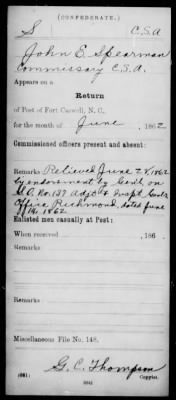 (CONFEDERATE.)
S C.S.A
John E. Spearman
Commissary C.S.A.
Appears on a
Return
of Post of Fort Caswell, N. C.,
for the month of June, 1862
Commissioned officers present and absent:
Remarks Relieved June 28, 1862
by endorsement by Genl. on
S.O. No. 137 Adjt & Inspt. Genls
Office Richmond, dated June
14, 1862.
Enlisted men casually at Post:
When received, 186 .
Remarks
Remarks
Miscellaneous File No. 148.
G. C. Thompson
(661) Copyist.